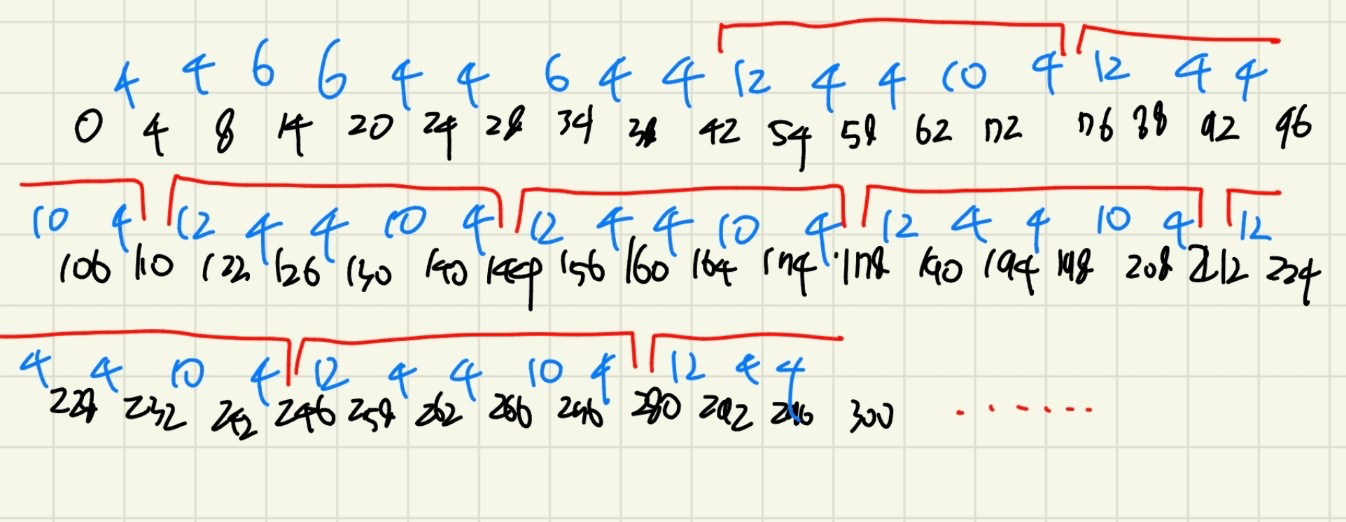 4 4 6 6 4 4 6 4 4 12 4 4 10 4 12 4 4
0 4 8 14 20 24 28 34 38 42 54 58 62 72 76 88 92 96
10 4 12 4 4 10 4 12 4 4 10 4 12 4 4 10 4 12
106 110 122 126 130 140 144 156 160 164 174 178 190 194 198 208 212 224
4 4 10 4 12 4 4 10 4 12 4 4
228 232 242 246 258 262 266 276 280 292 296 300 .......